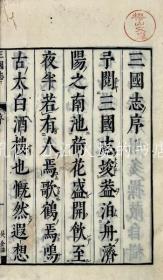 三國志序
予閱三國竣泊舟濟
陽之南池荷花盛開飲至
夜半若有人焉歌鶴焉鳴
古太白酒樓也慨然遐想
三國志
序